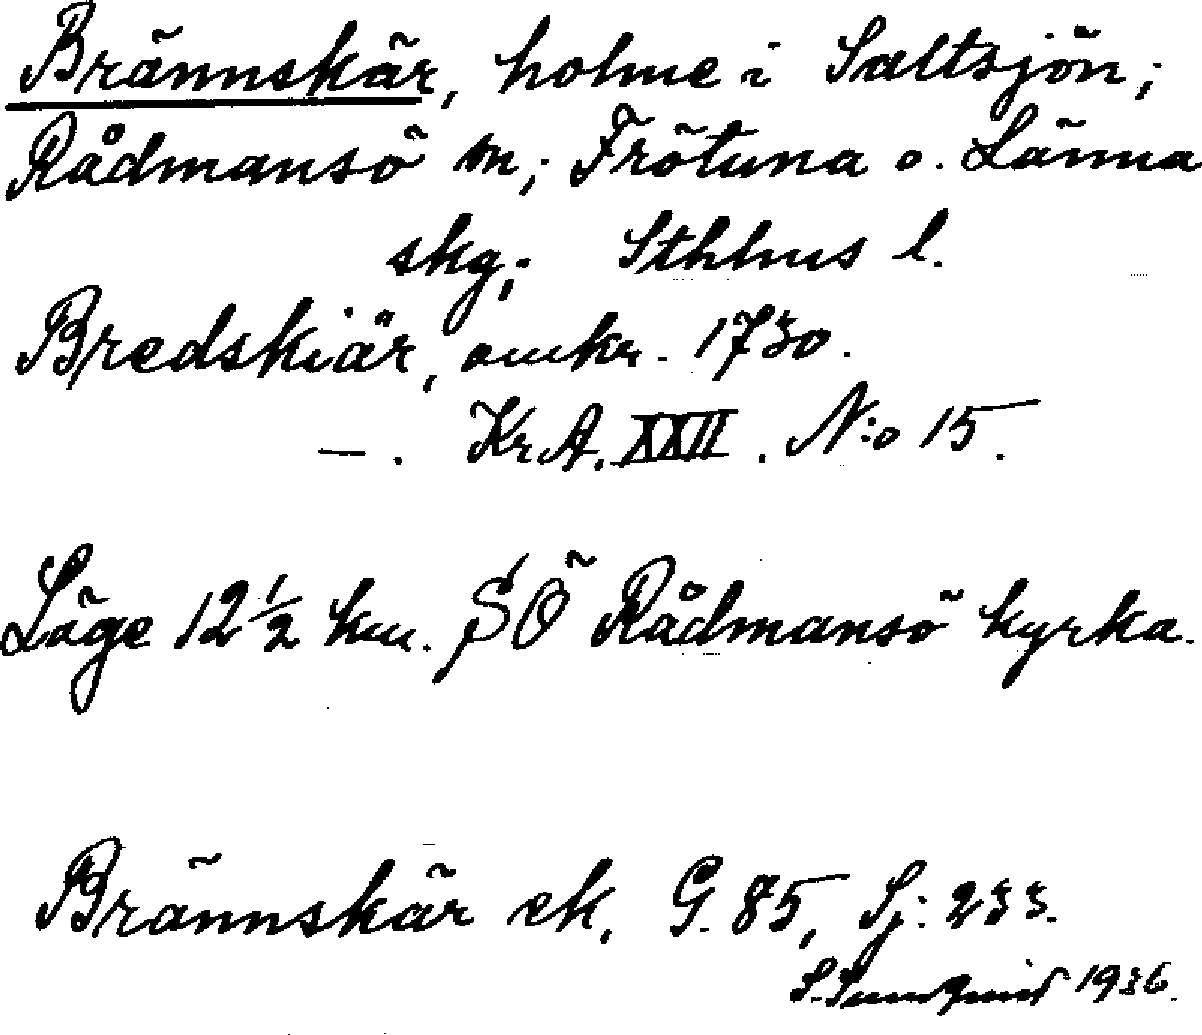 Brännskär, holme i Saltsjön;
Rådmansö sn; Frötuna o. Länna
skg; Sthlms l.
Bredskiär, omkr. 1730.
—. KrA. XXII. N:o 15.
Läge 12½ km. SÖ Rådmansö kyrka.
Brännskär ek. G. 85, Sj: 233.
S. Sundqvist 1936.